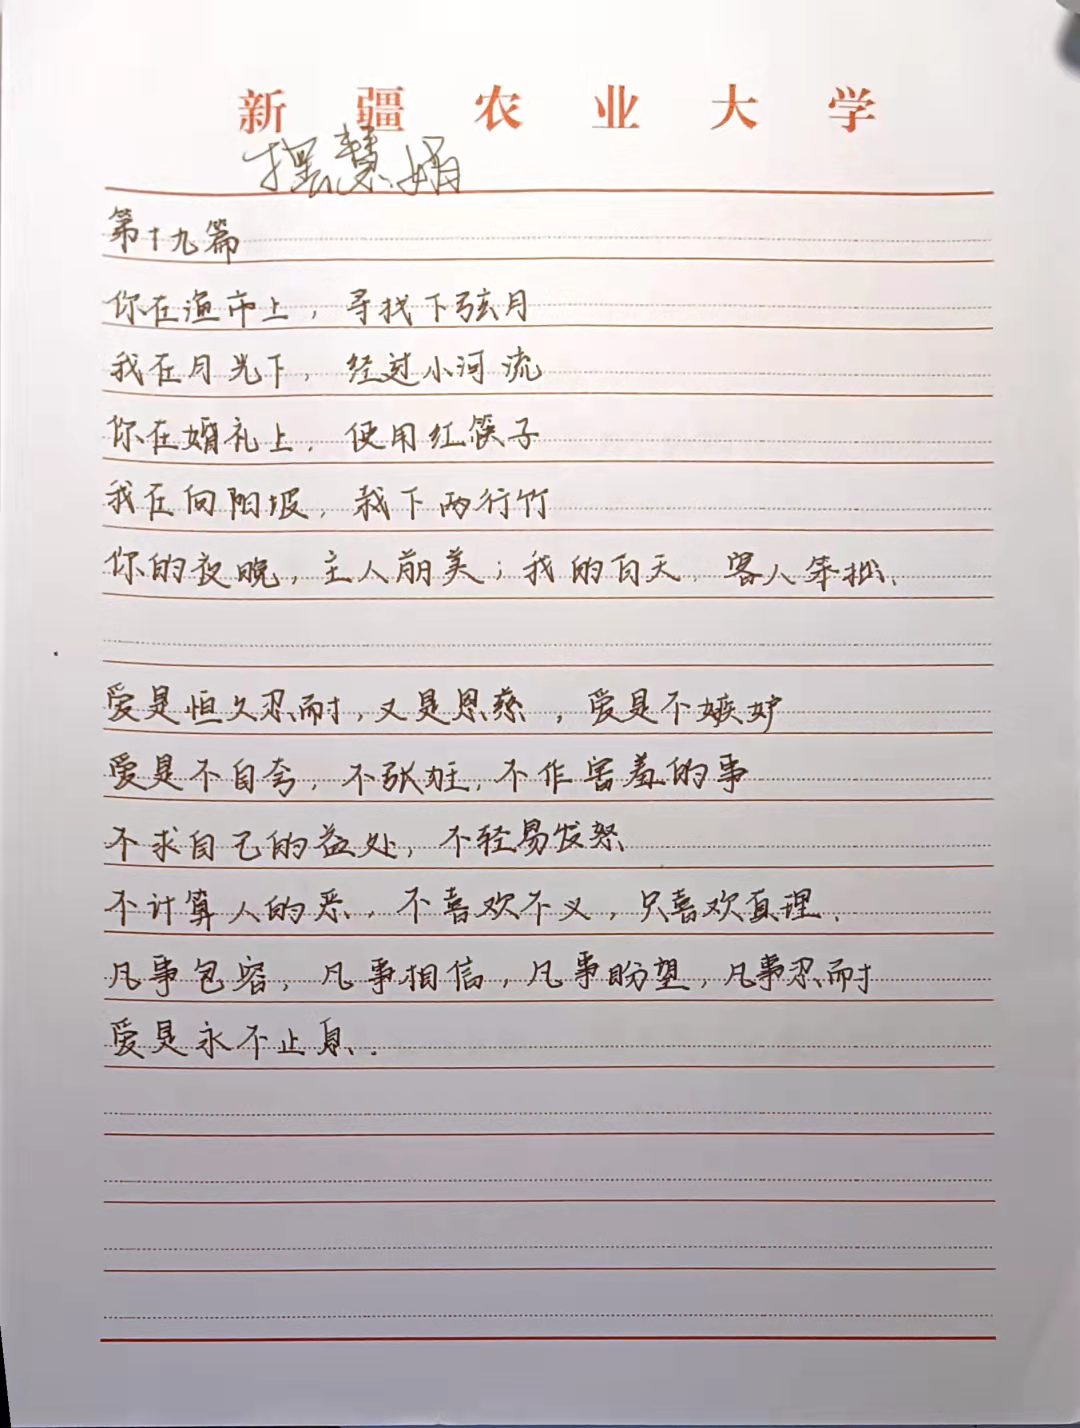 新疆农业大学
摆慧娟
第十九篇
你在渔市上，寻找下弦月
我在月光下，经过小河流
你在婚礼上，使用红筷子
我在向阳坡，栽下两行竹
你的夜晚，主人前美；我的白天，客人笨拙、
爱是恒久忍耐，又是恩慈，爱是不嫉妒
爱是不自夸，不张狂，不作害羞的事
不求自己的益处，不轻易发怒
不计算人的恶，不喜欢不义，只喜欢真理、
凡事包容，凡事相信，凡事盼望，凡事忍耐
爱是永不止息．